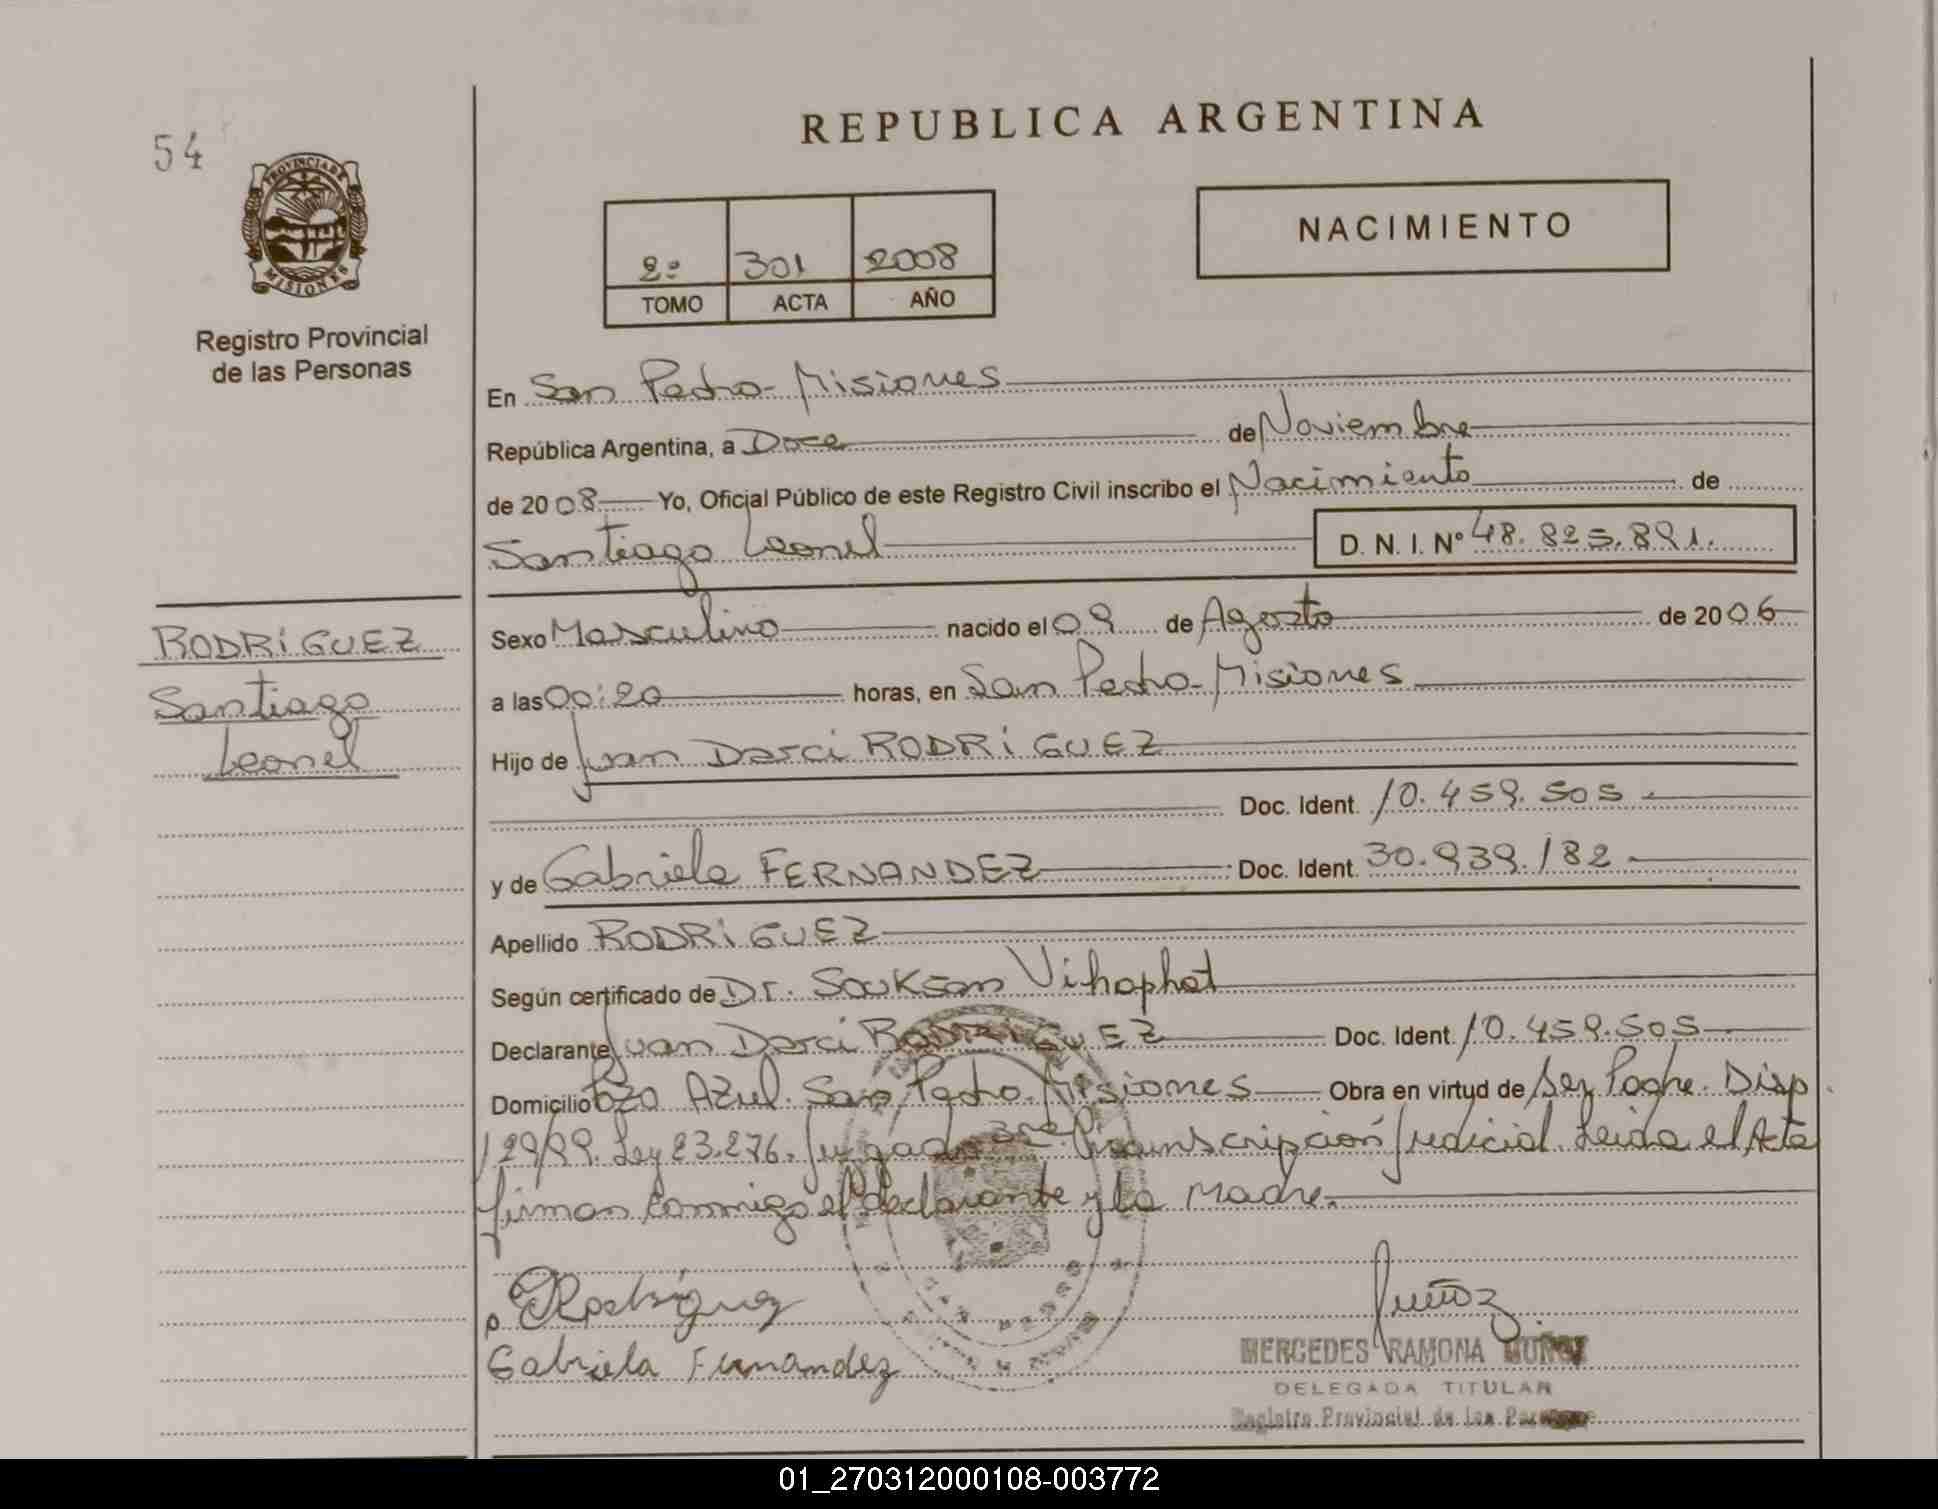 54
PROVINCIA DE
MISIONES
Registro Provincial
de las Personas
REPUBLICA ARGENTINA
2º 301 2008
TOMO ACTA AÑO
NACIMIENTO
En San Pedro-Misiones
República Argentina, a Doce de Noviembre
de 2008 Yo, Oficial Público de este Registro Civil inscribo el Nacimiento de
Santiago Leonel D. N. I. Nº 48.825.891.
RODRIGUEZ
Santiago
Leonel
Sexo Masculino nacido el 09 de Agosto de 2006
a las 00:20 horas, en San Pedro-Misiones
Hijo de Juan Darci RODRIGUEZ
Doc. Ident. 10.459.505
y de Gabriela FERNANDEZ Doc. Ident. 30.939.182
Apellido RODRIGUEZ
Según certificado de Dr. Souksan Vihaphat
Declarante Juan Darci RODRIGUEZ Doc. Ident. 10.459.505
Domicilio Pozo Azul. San Pedro. Misiones Obra en virtud de Ser Padre. Disp.
129/99. Ley 23.276. Juzgado 3ra Circunscripción Judicial. Leida el Acta
firman conmigo el declarante y la Madre.
Rodriguez
Gabriela Fernandez
Muñoz
MERCEDES RAMONA MUÑOZ
DELEGADA TITULAR
Registro Provincial de las Personas
01_270312000108-003772